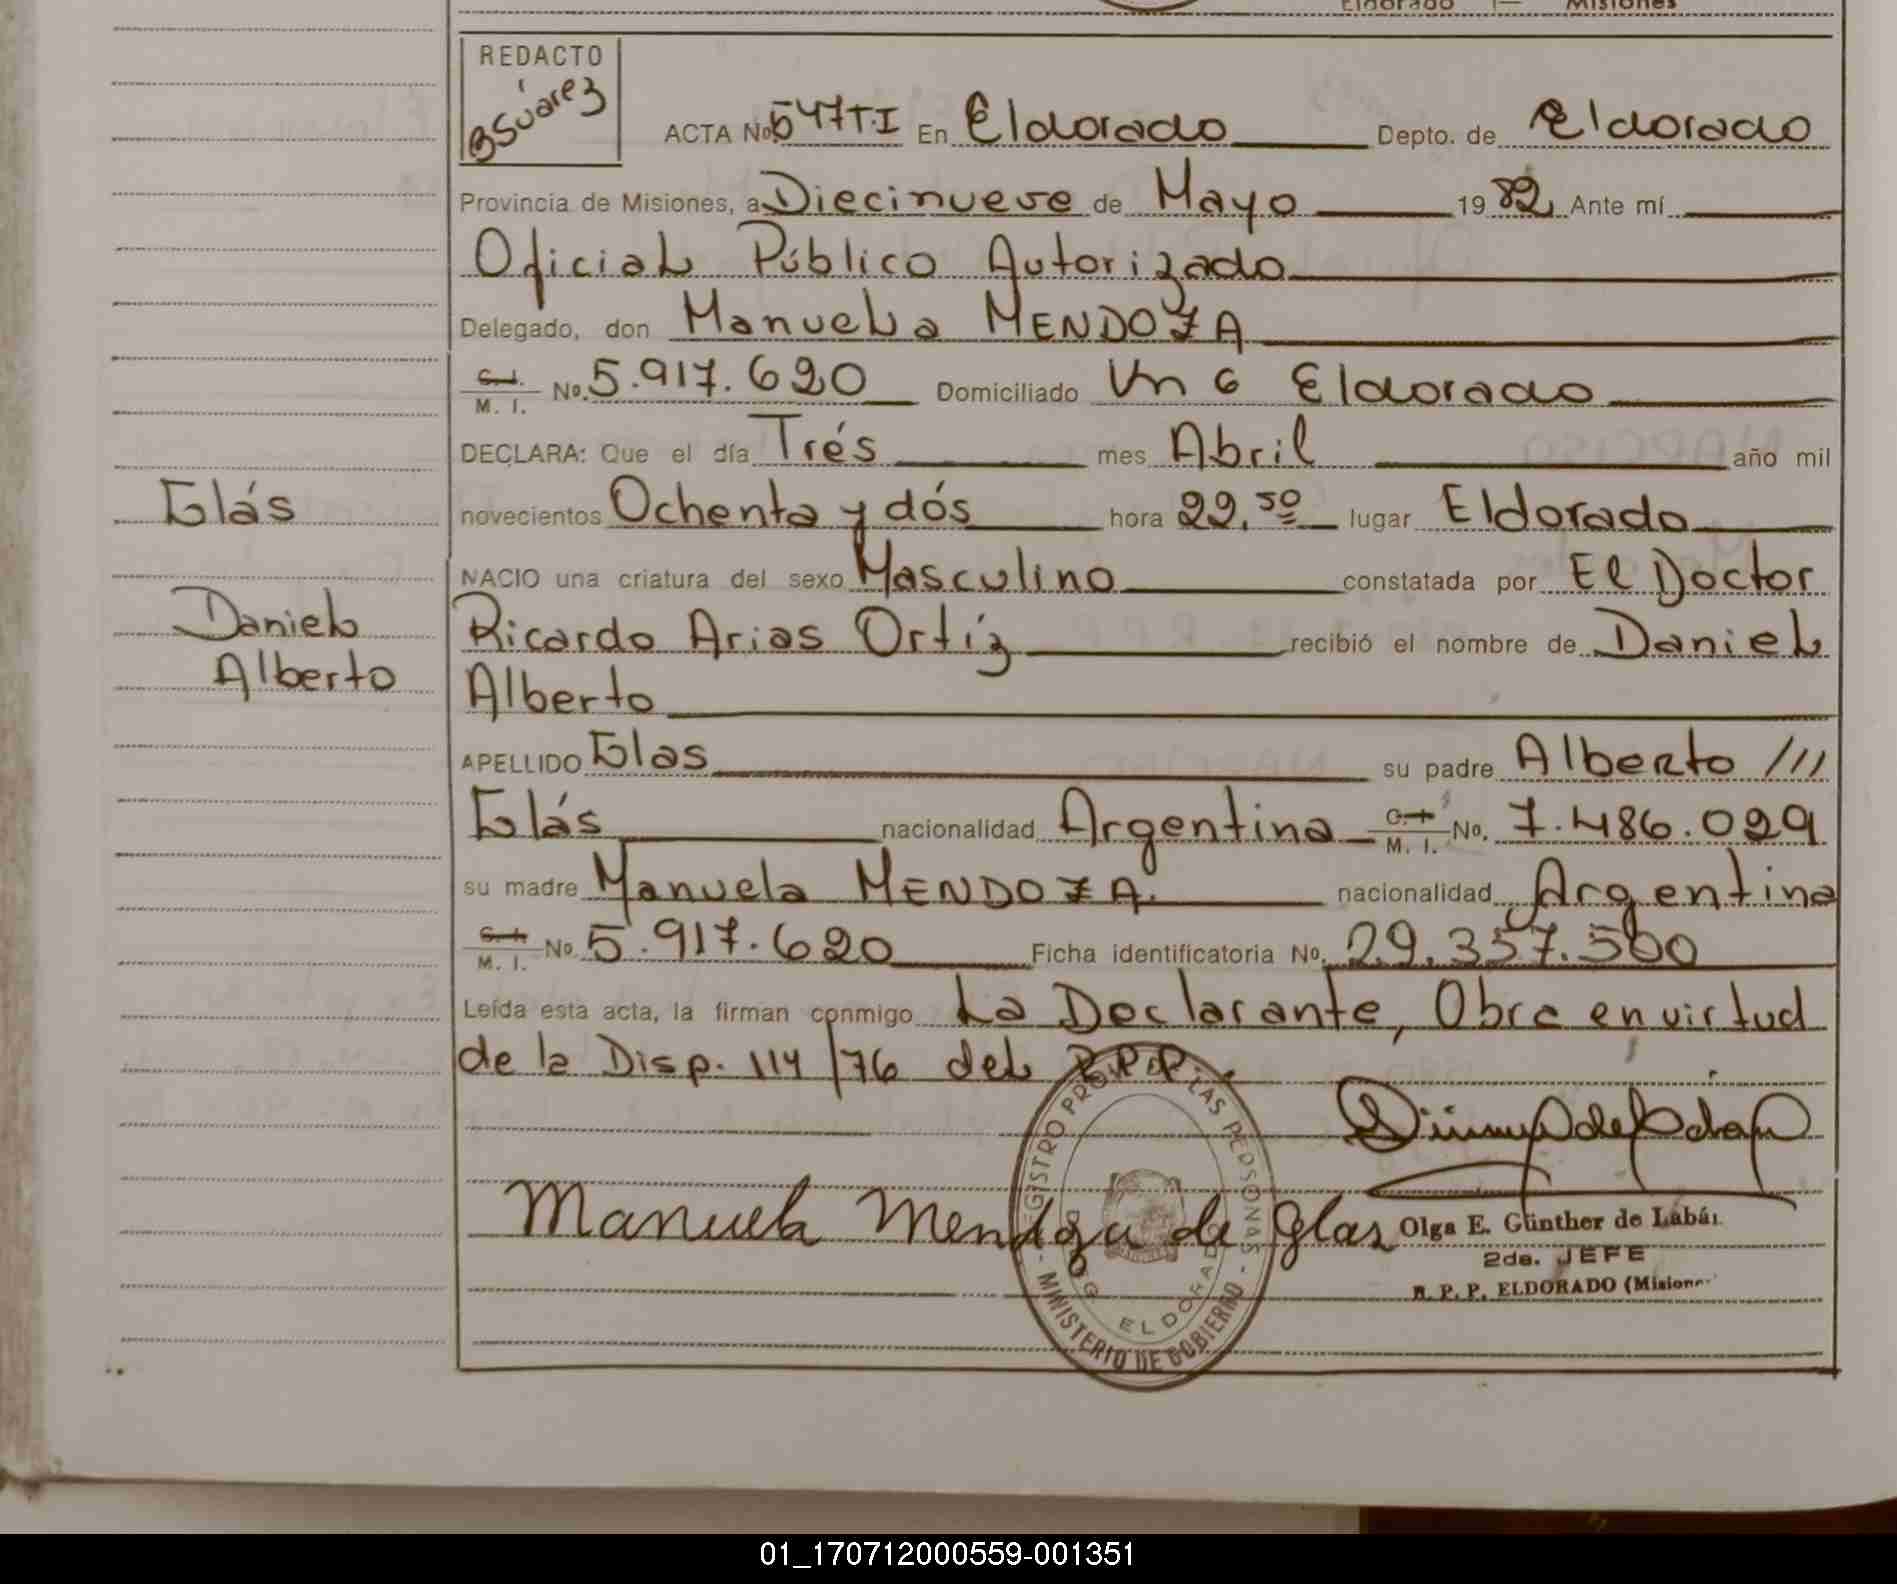 Eldorado — Misiones
REDACTO
BSuárez
ACTA No 547 T.I En Eldorado Depto. de Eldorado
Provincia de Misiones, a Diecinueve de Mayo 1982 Ante mí
Oficial Público Autorizado
Delegado, don Manuela MENDOZA
C. I. / M. I. No. 5.917.620 Domiciliado Km 6 Eldorado
DECLARA: Que el día Trés mes Abril año mil
novecientos Ochenta y dós hora 22,50 lugar Eldorado
NACIO una criatura del sexo Masculino constatada por El Doctor
Ricardo Arias Ortíz recibió el nombre de Daniel
Alberto
APELLIDO Glas su padre Alberto ///
Glás nacionalidad Argentina C. I. / M. I. No. 7.486.029
su madre Manuela MENDOZA. nacionalidad Argentina
C. I. / M. I. No. 5.917.620 Ficha identificatoria No. 29.357.500
Leída esta acta, la firman conmigo La Declarante, Obra en virtud
de la Disp. 114/76 del R.P.P..
Manuela Mendoza de Glas
Olga E. Günther de Labá
2da. JEFE
R. P. P. ELDORADO (Misiones
REGISTRO PROV. DE LAS PERSONAS - MINISTERIO DE GOBIERNO -
ELDORADO
Glás
Daniel
Alberto
01_170712000559-001351